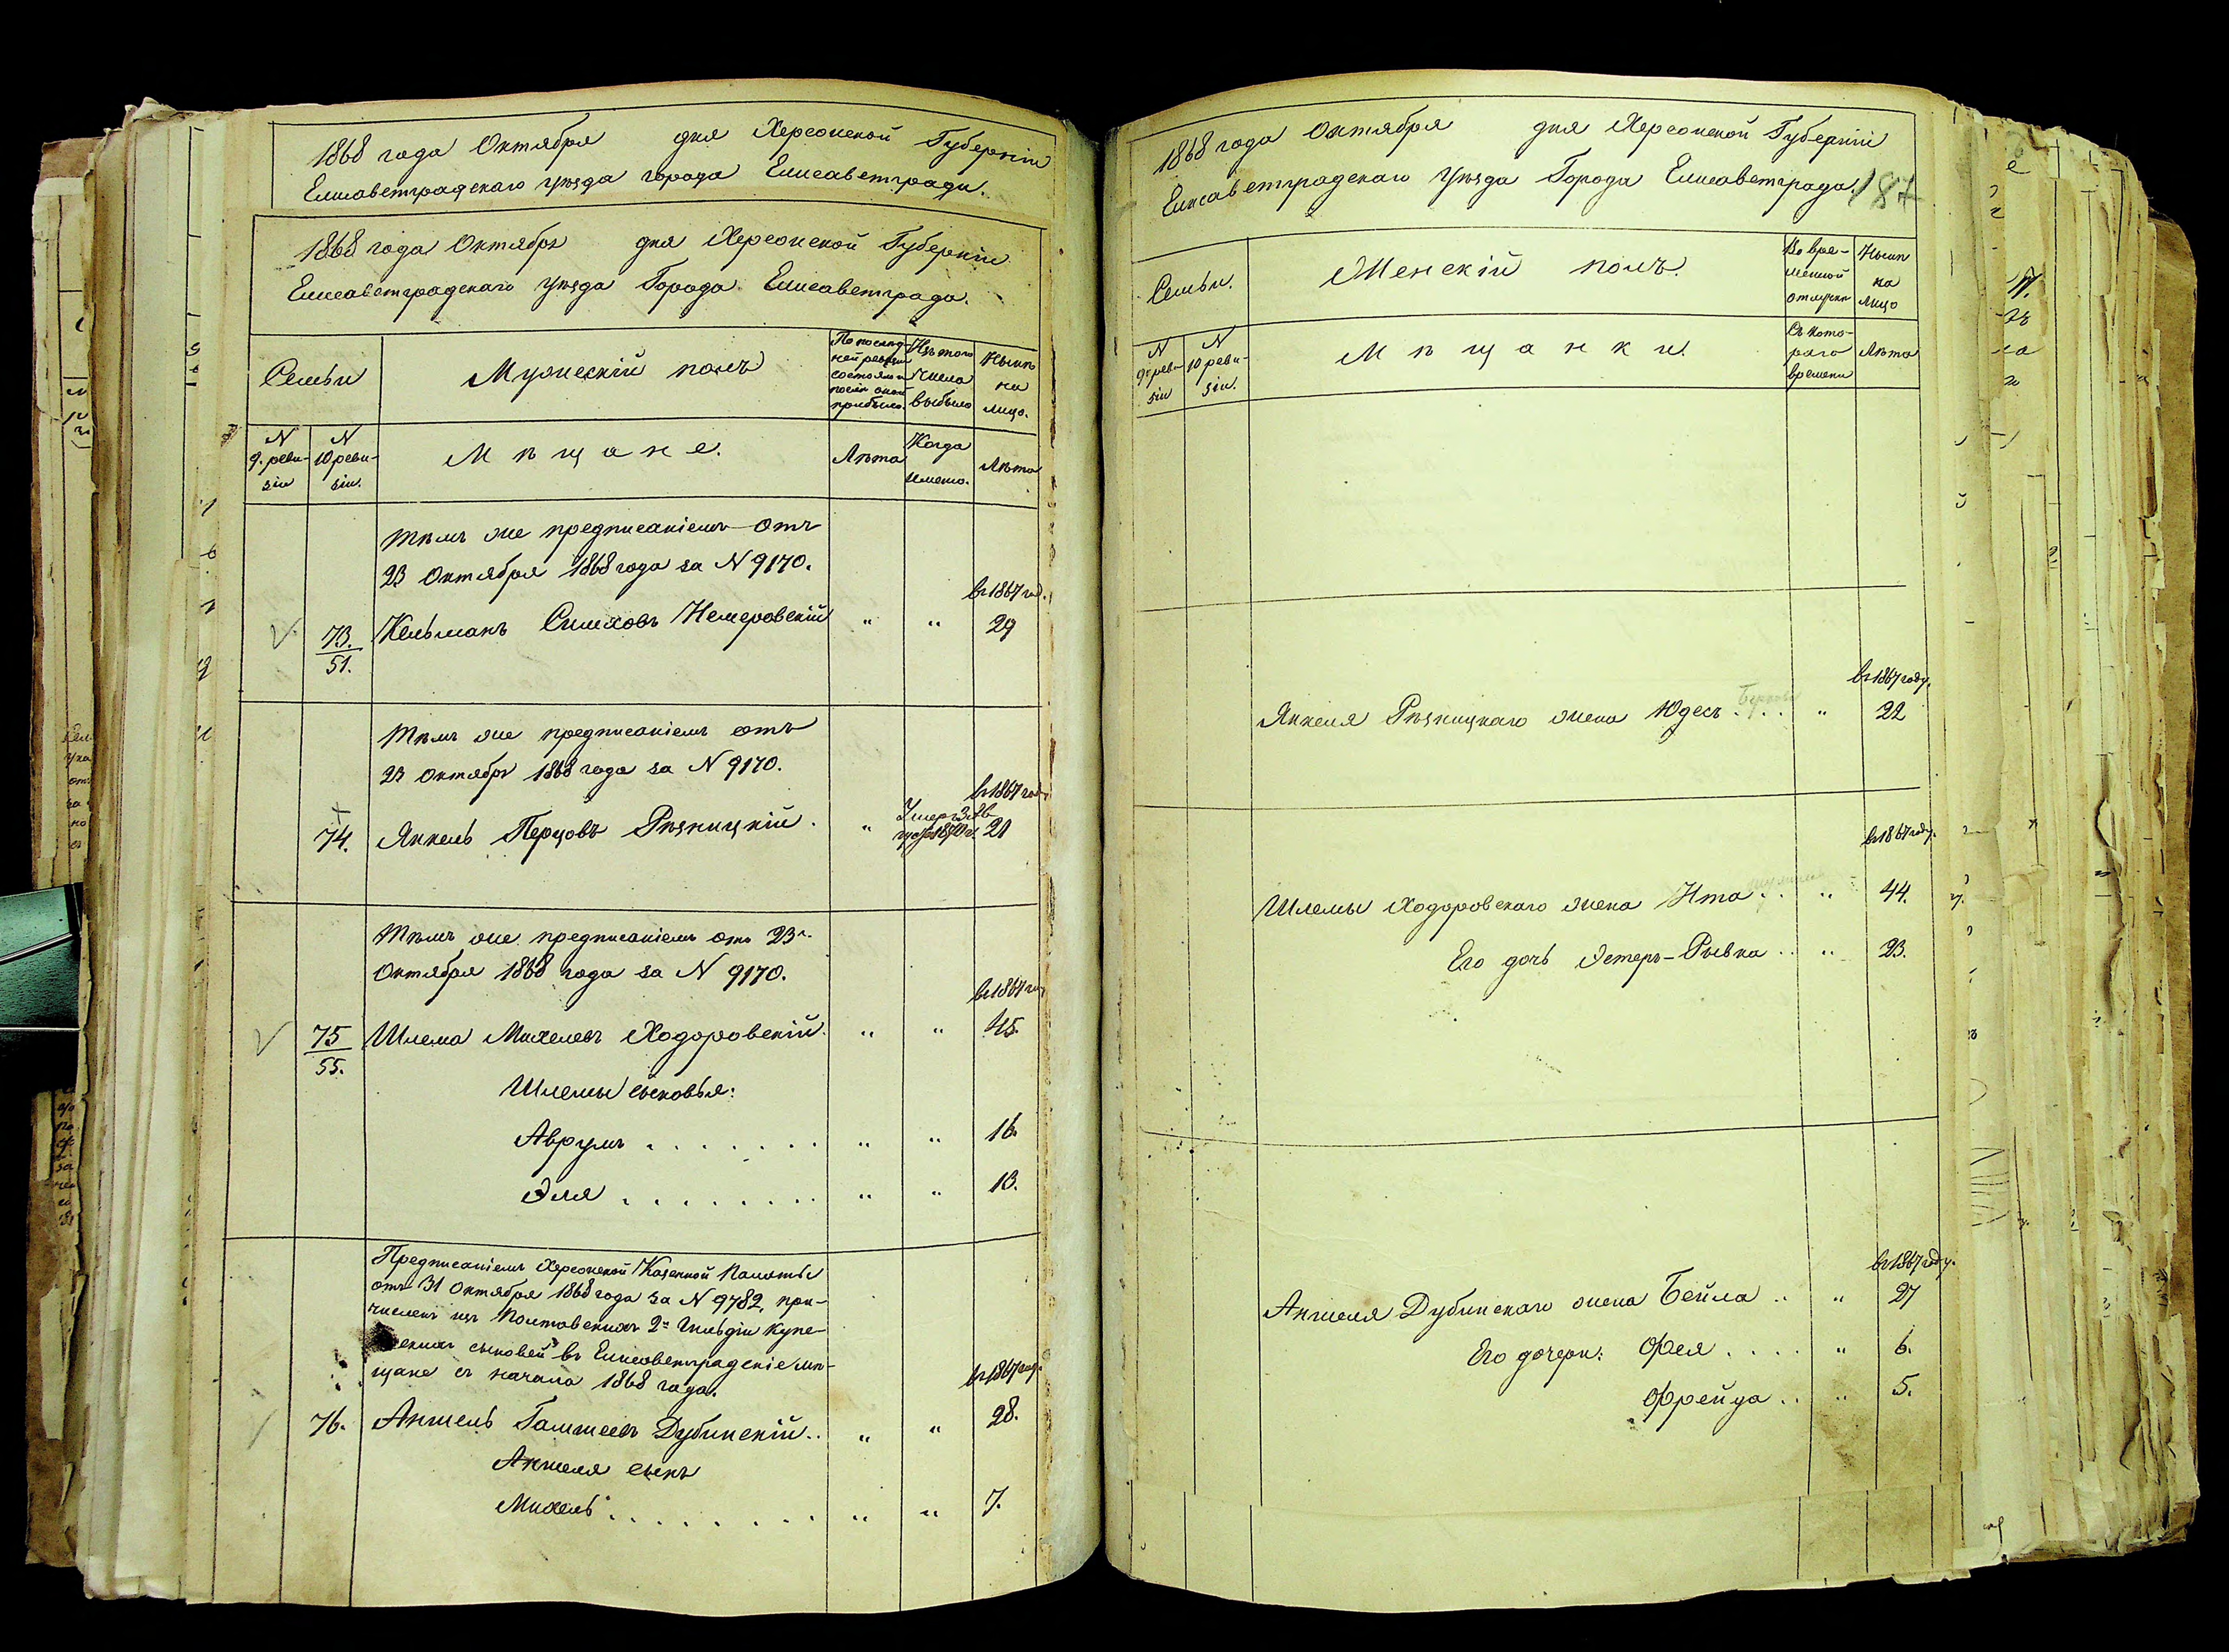 1868 года Октября дня Херсонской Губерніи
Елисаветградскаго уѣзда города Елисаветграда.
1868 года Октября дня Херсонской Губерніи
Елисаветградскаго уѣзда Города Елисаветграда.
Семьи
Мужескій полъ
По послѣдней ревизіи состояло и послѣ оной прибыло.
Изъ того числа выбыло
Нынѣ на лицо.
N 9. ревизіи
N 10 ревизіи.
Мѣщане.
Лѣта
Когда именно.
Лѣта
Тѣмъ же предписаніемъ отъ
23 Октября 1868 года за N 9170.
въ 1867 год.
73./51. Кельманъ Симховъ Немеровскій " " 29
Тѣмъ же предписаніемъ отъ
23 Октября 1868 года за N 9170.
въ 1867 год
74. Янкель Перцовъ Рѣзницкій . " Умеръ 21
Тѣмъ же предписаніемъ отъ 23
Октября 1868 года за N 9170.
въ 1867 год
75/55. Шлема Михелевъ Ходоровскій. " " 45.
Шлемы сыновья:
Аврумъ . . . . . . . " " 16.
Эля . . . . . . . . " " 13.
Предписаніемъ Херсонской Казенной Палаты
отъ 31 Октября 1868 года за N 9782, при-
численъ изъ Полтавскихъ 2й Гильдіи купе-
ческихъ сыновей въ Елисаветградскіе мѣ-
щане съ начала 1868 года.
въ 1867 год.
76. Аншель Гамшеевъ Дубинскій.. " " 28.
Аншеля сынъ
Михель . . . . . . . . " " 7.
1868 года Октября дня Херсонской Губерніи
Елисаветградскаго Уѣзда Города Елисаветграда.
187
Семьи.
Женскій полъ.
Во временной отлучкѣ
Нынѣ на лицо
N 9 ревизіи
N 10 ревизіи.
Мѣщанки.
Съ котораго времени
Лѣта
въ 1867 году.
Янкеля Рѣзницкаго жена Юдесъ . . . " 22
въ 1867 году.
Шлемы Ходоровскаго жена Ита . . " 44.
Его дочь Эстеръ-Рывка . . " 23.
въ 1867 году.
Аншеля Дубинскаго жена Бейла .. " 27
Его дочери: Фея . . . . " 6.
Фрейда . . " 5.